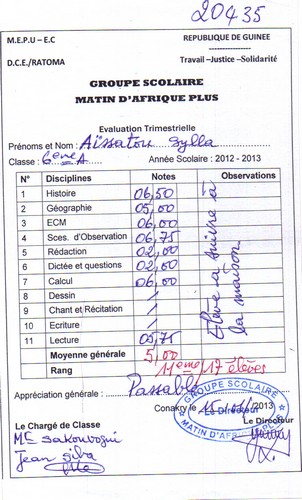 20435
M.E.P.U – E.C REPUBLIQUE DE GUINEE
D.C.E./RATOMA Travail –Justice –Solidarité
GROUPE SCOLAIRE
MATIN D'AFRIQUE PLUS
Evaluation Trimestrielle
Prénoms et Nom : Aïssatou Sylla
Classe : 6ème A Année Scolaire : 2012 - 2013
N° Disciplines Notes Observations
1 Histoire 06,50
2 Géographie 05,00
3 ECM 06,00
4 Sces. d'Observation 06,75
5 Rédaction 02,00
6 Dictée et questions 02,00
7 Calcul 06,00
8 Dessin /
9 Chant et Récitation /
10 Ecriture /
11 Lecture 05,75
Elève à suivre à
la maison
Moyenne générale 5,00
Rang 11ème/17 élèves
Appréciation générale : Passable
Conakry le 15/ /2013
Le Chargé de Classe Le Directeur
GROUPE SCOLAIRE
Le Directeur
MATIN D'AFRIQUE PLUS
Jean Siba